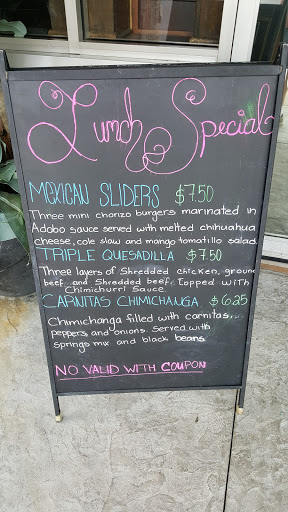 Lunch Special
MEXICAN SLIDERS $7.50
Three mini chorizo burgers marinated in
Adobo sauce served with melted chihuahua
cheese, cole slow and mango tomatillo salad.
TRIPLE QUESADILLA $7.50
Three layers of shredded chicken, ground
beef and shredded beef. Topped with
Chimichurri Sauce
CARNITAS CHIMICHANGA $6.25
Chimichanga filled with carnitas...
peppers and onions. Served with
springs mix and black beans
NO VALID WITH COUPON